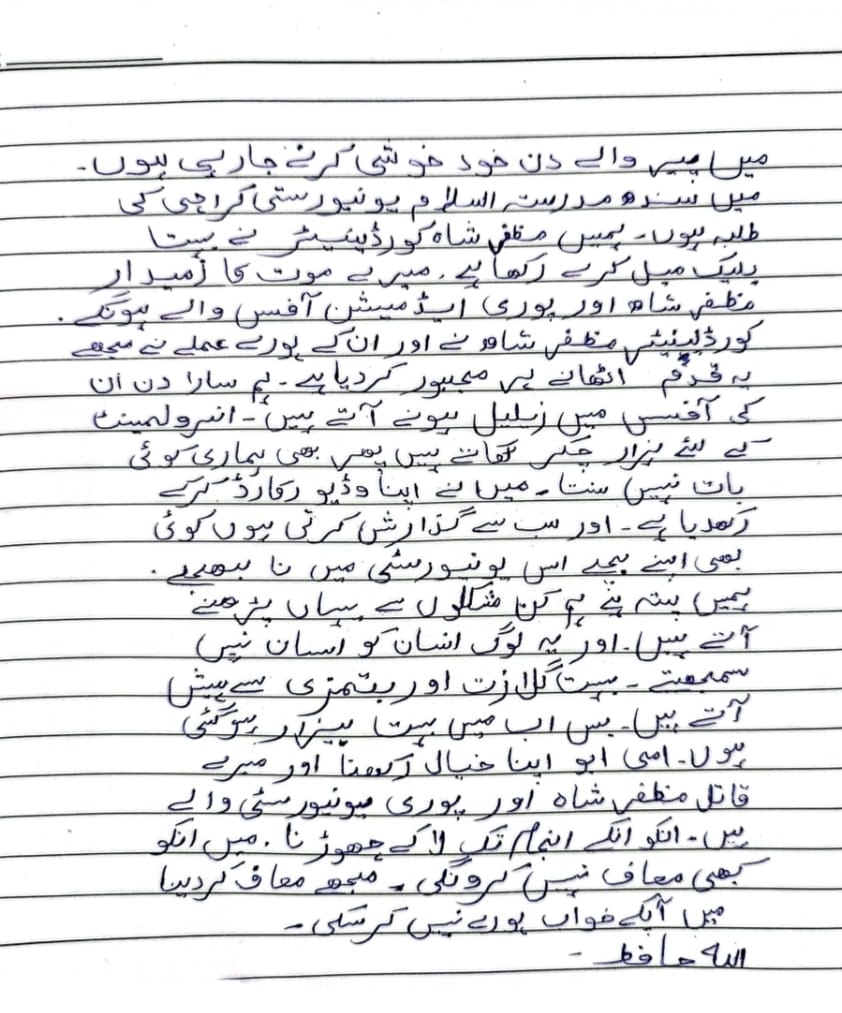 میں پیر والے دن خود خوشی کرنے جارہی ہوں۔
میں سندھ مدرستہ السلام یونیورسٹی کراچی کی
طلبہ ہوں۔ ہمیں مظفر شاہ کورڈینیٹر نے بہت
بلیک میل کرے رکھا ہے۔ میرے موت کا زمیدار
مظفر شاہ اور پوری ایڈمیشن آفس والے ہونگے۔
کورڈینیٹر مظفر شاہ نے اور ان کے پورے عملے نے مجھے
یہ قدم اٹھانے پر مجبور کردیا ہے۔ ہم سارا دن ان
کی آفس میں زلیل ہونے آتے ہیں۔ انرولمینٹ
کے لئے ہزار چکر کھاتے ہیں پھر بھی ہماری کوئی
بات نہیں سنتا۔ میں نے اپنا وڈیو رکارڈ کرکے
رکھدیا ہے۔ اور سب سے گذارش کرتی ہوں کوئی
بھی اپنے بچے اس یونیورسٹی میں نا بھیجے۔
ہمیں پتہ ہے ہم کن مشکلوں سے یہاں پڑھنے
آتے ہیں۔ اور یہ لوگ انسان کو انسان نہیں
سمجھتے۔ بہت گلازت اور بتمزی سے پیش
آتے ہیں۔ بس اب میں بہت بیزار ہوگئی
ہوں۔ امی ابو اپنا خیال رکھنا اور میرے
قاتل مظفر شاہ اور پوری یونیورسٹی والے
ہیں۔ انکو انکے انجام تک لا کے چھوڑنا۔ میں انکو
کبھی معاف نہیں کرونگی۔ مجھے معاف کردینا
میں آپکے خواب پورے نہیں کرسکی۔
اللہ حافظ۔